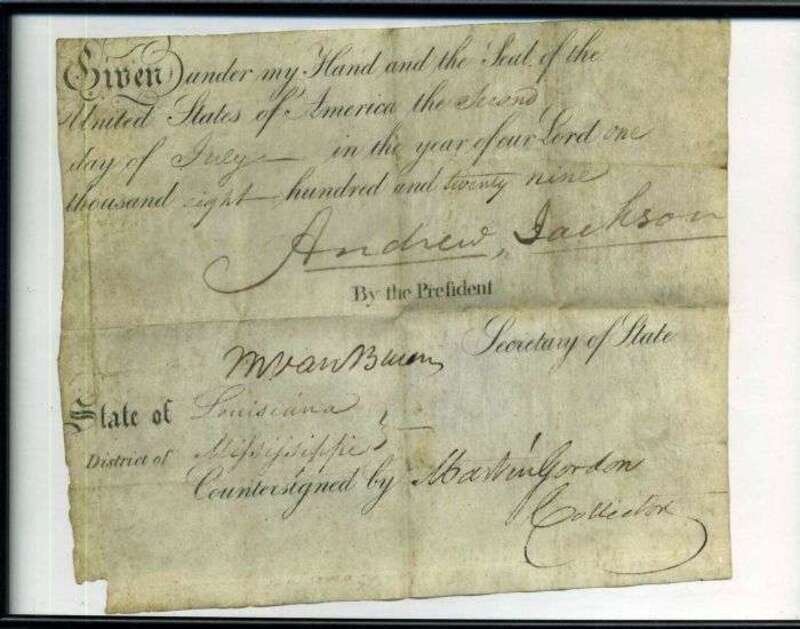 Given under my Hand and the Seal of the
United States of America the Second
day of July in the year of our Lord one
thousand eight hundred and twenty nine
Andrew Jackson
By the Preſident
M Van Buren Secretary of State
State of Louisiana
District of Mississippi
Countersigned by Martin Gordon
Collector